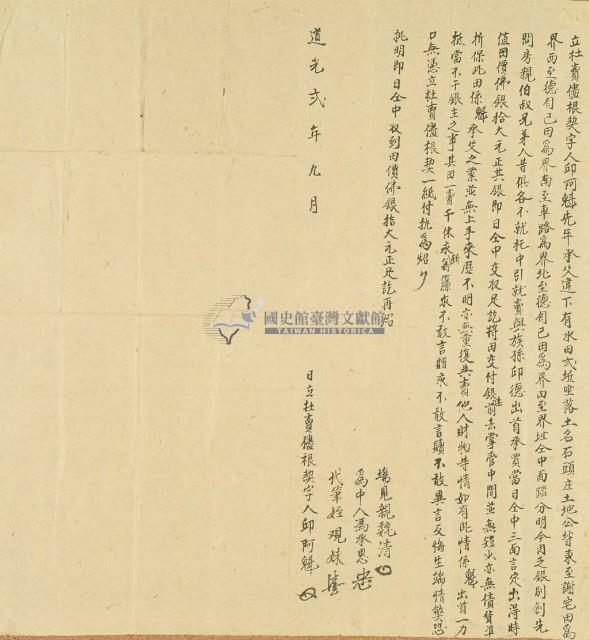 立杜賣儘根契字人邱阿魁先年承父遺下有水田弍坵坐落土名石頭庄土地公背東至謝宅田為
界西至德旬己田為界南至車路為界北至德旬己田為界四至界址仝中面踏分明今因乏銀別創先
問房親伯叔兄弟人等俱各不就托中引就賣與族孫邱德出首承買當日仝中三面言定出得時
值田價佛銀拾大元正其銀即日仝中交收足訖將田交付銀主前去掌管中間並無短少亦無債貨準
折保此田係魁承父之業並無上手來歷不明亦無重復典賣他人財物等情如有此情係魁出首一力
抵當不干銀主之事其田一賣千休永斷葛藤永不敢言贈永不敢言贖不敢異言反悔生端情弊恐
口無憑立杜賣儘根契一紙付執為炤
批明即日仝中收到田價佛銀拾大元正足訖再炤
場見親魏清
為中人馮承恩
代筆姪觀妹
道光弍年九月 日立杜賣儘根契字人邱阿魁
國史館臺灣文獻館
TAIWAN HISTORICA